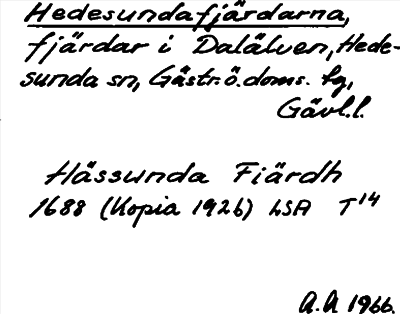 Hedesundafjärdarna,
fjärdar i Dalälven, Hede-
sunda sn, Gästr. ö. doms. tg,
Gävl. l.
Hässunda Fiärdh
1688 (Kopia 1926) LSA T14
A.A 1966.